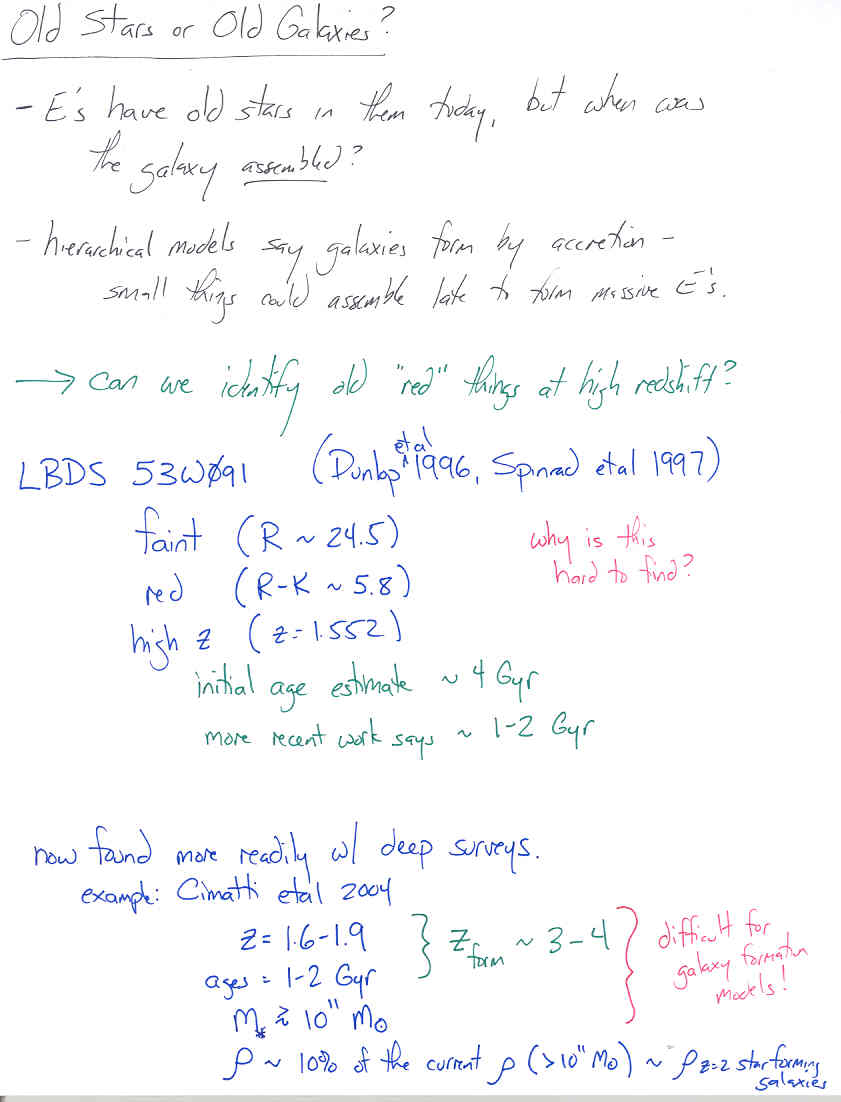 Old Stars or Old Galaxies?
- E's have old stars in them today, but when was
the galaxy assembled?
- hierarchical models say galaxies form by accretion -
small things could assemble late to form massive E's.
→ can we identify old "red" things at high redshift?
LBDS 53WØ91 (Dunlop et al 1996, Spinrad et al 1997)
faint (R ~ 24.5)
why is this
hard to find?
red (R-K ~ 5.8)
high z (z = 1.552)
initial age estimate ~ 4 Gyr
more recent work says ~ 1-2 Gyr
now found more readily w/ deep surveys.
example: Cimatti et al 2004
z = 1.6-1.9 } z_form ~ 3-4 } difficult for
galaxy formation
models!
ages = 1-2 Gyr
M_* ≳ 10^11 M_⊙
ρ ~ 10% of the current ρ (>10^11 M_⊙) ~ ρ_z=2 star forming
galaxies